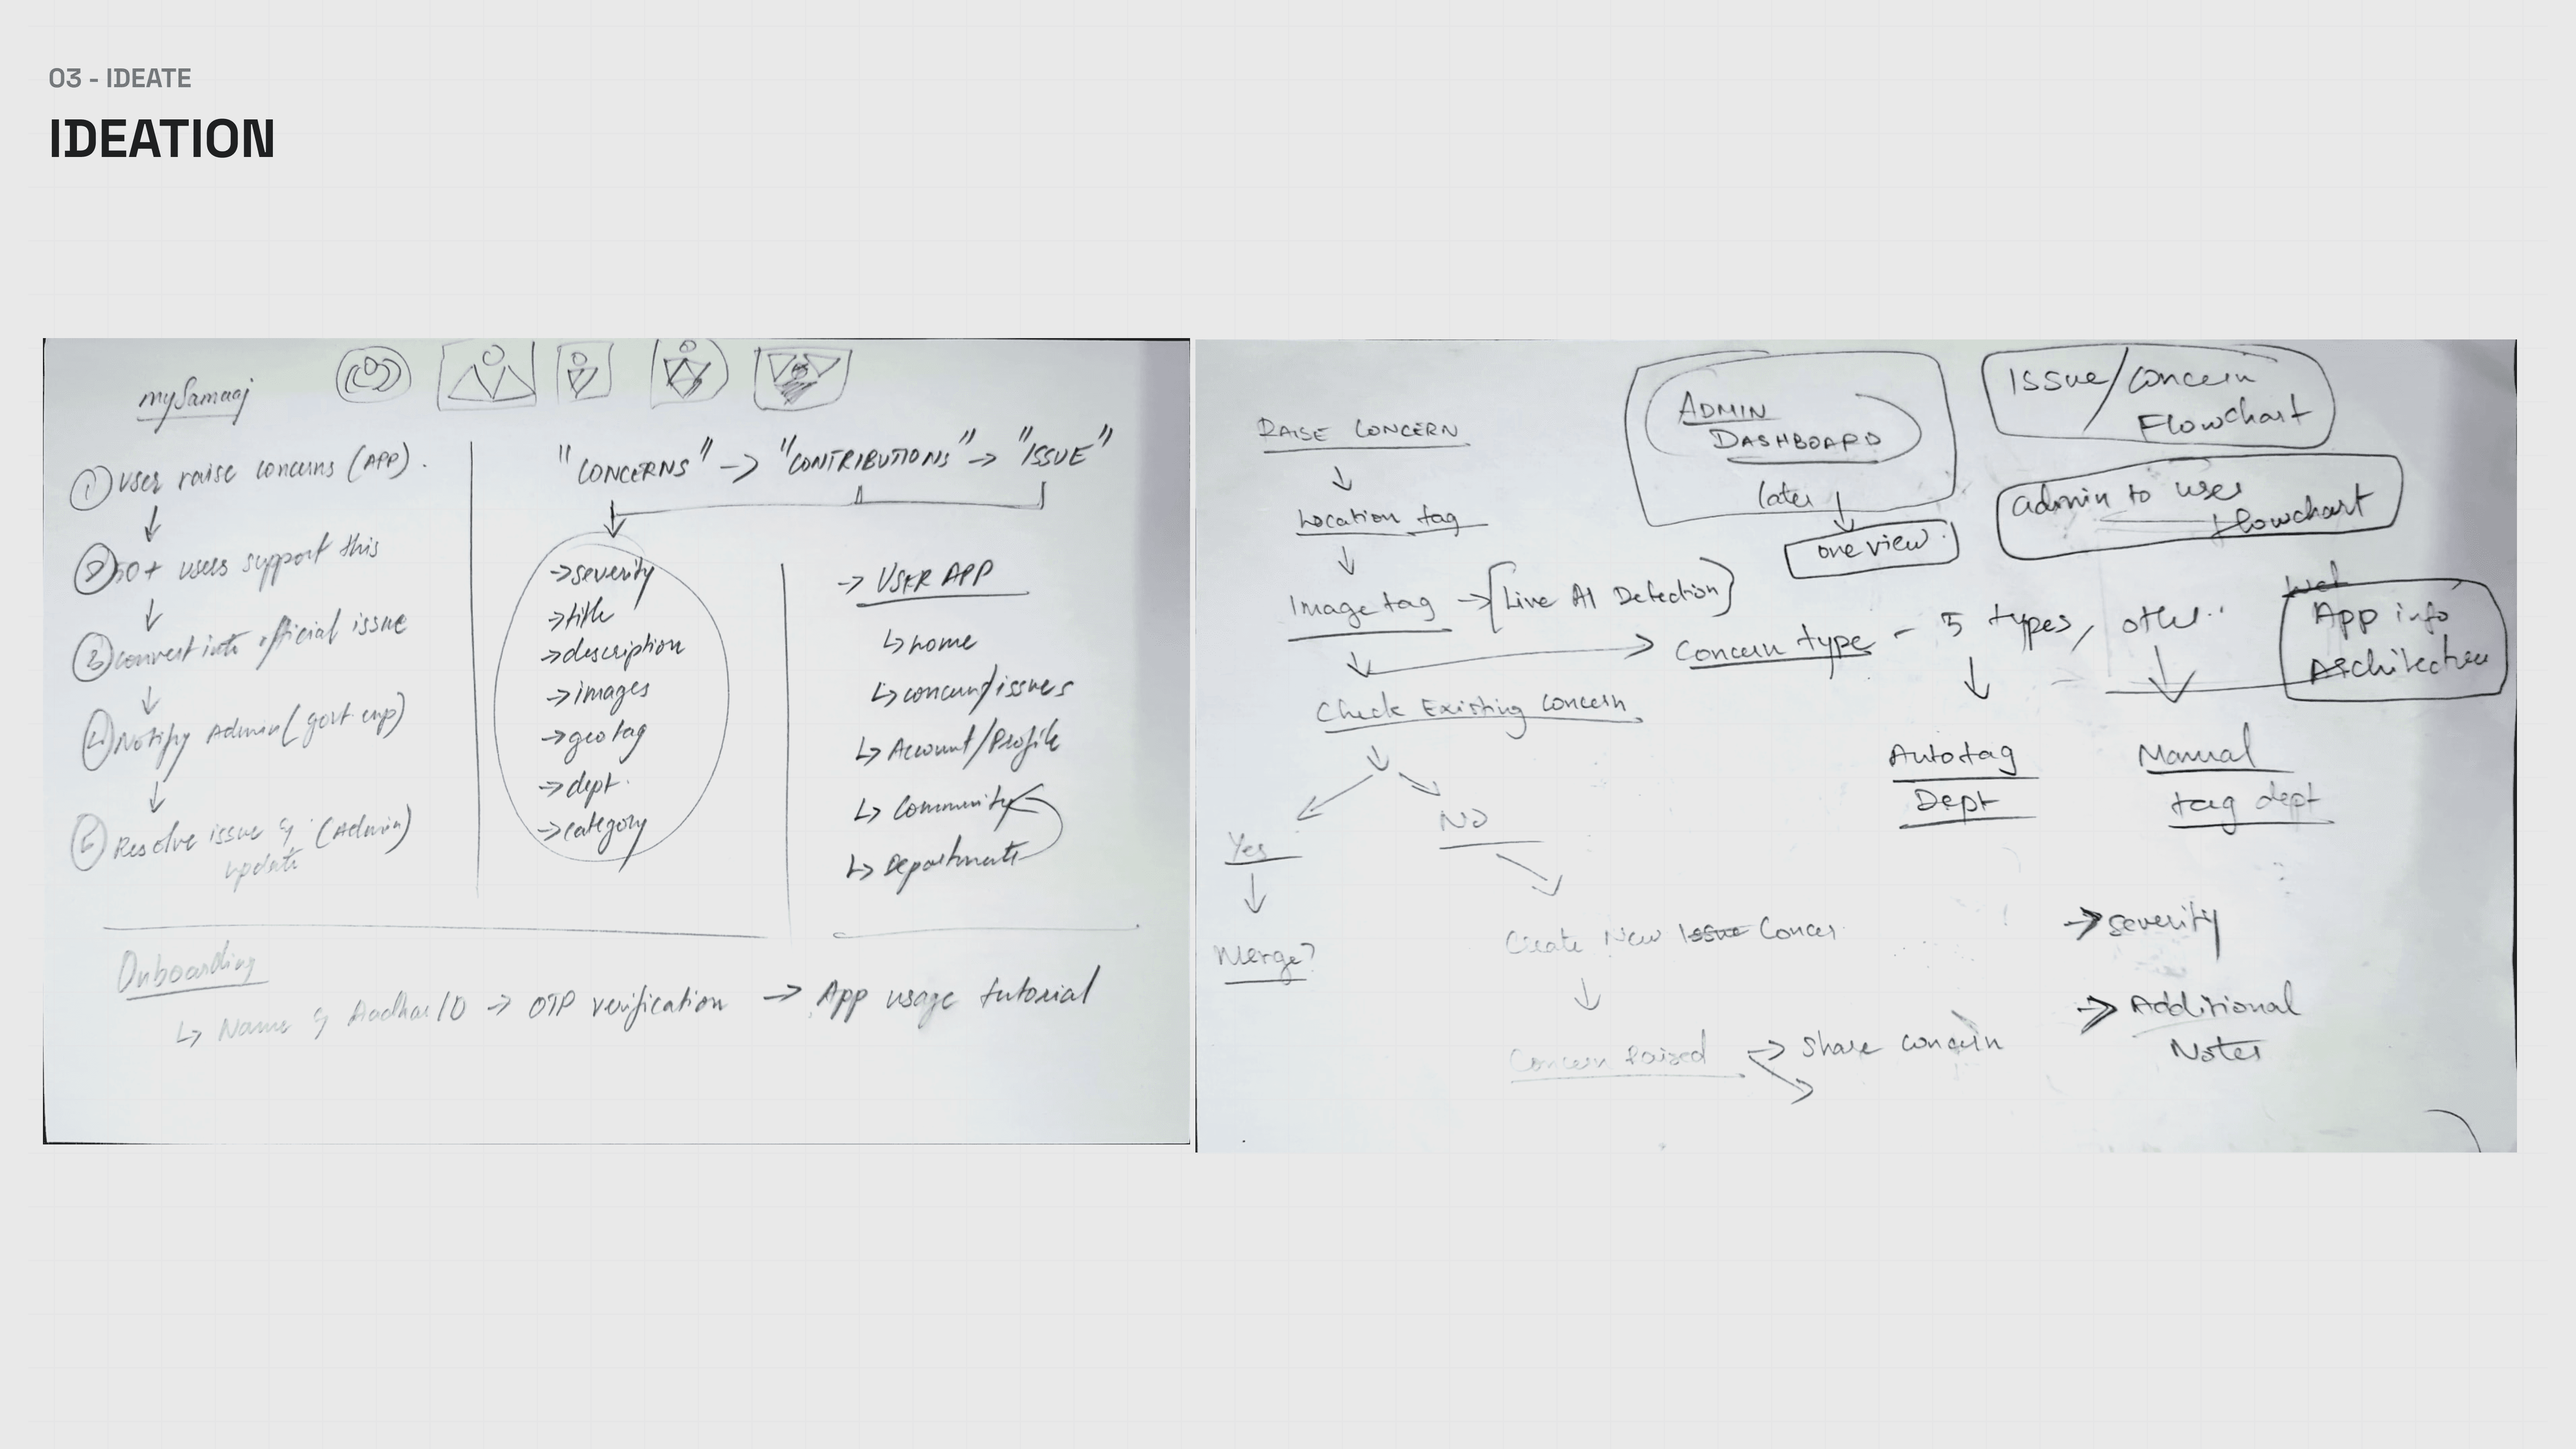 03 - IDEATE
IDEATION
mySamaaj
① User raise concerns (APP).
② 50+ users support this
③ convert into official issue
④ Notify Admin (govt emp)
⑤ Resolve issue & (Admin)
update
"CONCERNS" → "CONTRIBUTIONS" → "ISSUE"
→ severity
→ title
→ description
→ images
→ geo tag
→ dept.
→ category
→ USER APP
↳ home
↳ concern/issues
↳ Account/Profile
↳ Community
↳ Departments
Onboarding
↳ Name & Aadhar ID → OTP verification → App usage tutorial
RAISE CONCERN
Location tag
Image tag → [Live AI Detection]
Check Existing Concern
Yes
No
Merge?
Create New Issue Concer
Concern Raised → Share concern
ADMIN
DASHBOARD
later
one view.
Issue/Concern
Flowchart
admin to user
flowchart
App info
Architecture
Concern type - 5 types, other..
Autotag
Dept
Manual
tag dept
→ Severity
→ Additional
Notes